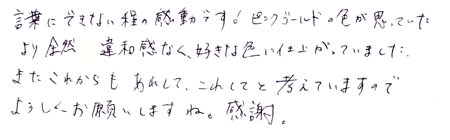 言葉にできない程の感動です！ピンクゴールドの色が思っていた
より全然 違和感なく、好きな色に仕上がっていました。
またこれからもあれして、これしてと考えていますので
よろしくお願いしますね。感謝。